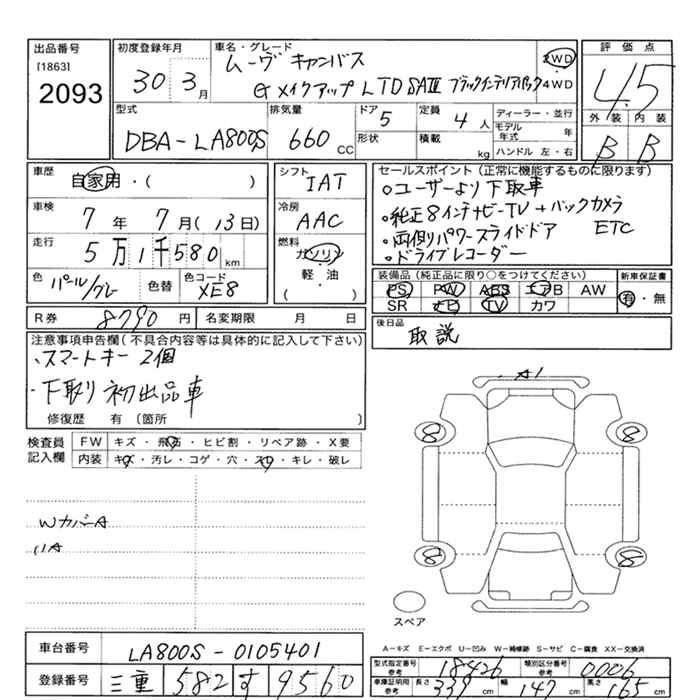 出品番号
[1863]
2093
初度登録年月
30 3月
車名・グレード
ムーヴ キャンバス
Gメイクアップ LTD SAⅢ ブラックインテリアパック
2WD
4WD
評価点
4.5
外装 内装
B B
型式
DBA-LA800S
排気量
660 CC
ドア
5
形状
定員
4 人
積載
kg
ディーラー・並行
モデル年式 年
ハンドル 左・右
車歴
自家用・( )
車検
7年 7月(13日)
走行
5万1千580km
色
パール/グレー
色替
色コード
XE8
シフト
IAT
冷房
AAC
燃料
ガソリン
軽・油
( )
セールスポイント(正常に機能するものに限ります)
○ユーザーより下取車
・純正8インチナビ-TV+バックカメラ
・両側パワースライドドア ETC
・ドライブレコーダー
装備品(純正品に限り○をつけてください)
PS PW ABS エアB AW
SR ナビ TV カワ
新車保証書
有・無
R券
8790 円
名変期限 月 日
後日品
取説
注意事項申告欄(不具合内容等は具体的に記入して下さい)
・スマートキー 2個
・下取り初出品車
修復歴 有 (箇所 )
検査員記入欄
FW キズ・飛石・ヒビ割・リペア跡・X要
内装 キズ・汚レ・コゲ・穴・スレ・キレ・破レ
WカバーA
A1
8 8
8 8
スペア
A-キズ E-エクボ U-凹み W-補修跡 S-サビ C-腐食 XX-交換済
車台番号
LA800S-0105401
登録番号
三重 582 す 9560
型式指定番号 参考
18426
類別区分番号 参考
0006
車庫証明用 参考
長さ 339 cm 幅 147 cm 高さ 165 cm